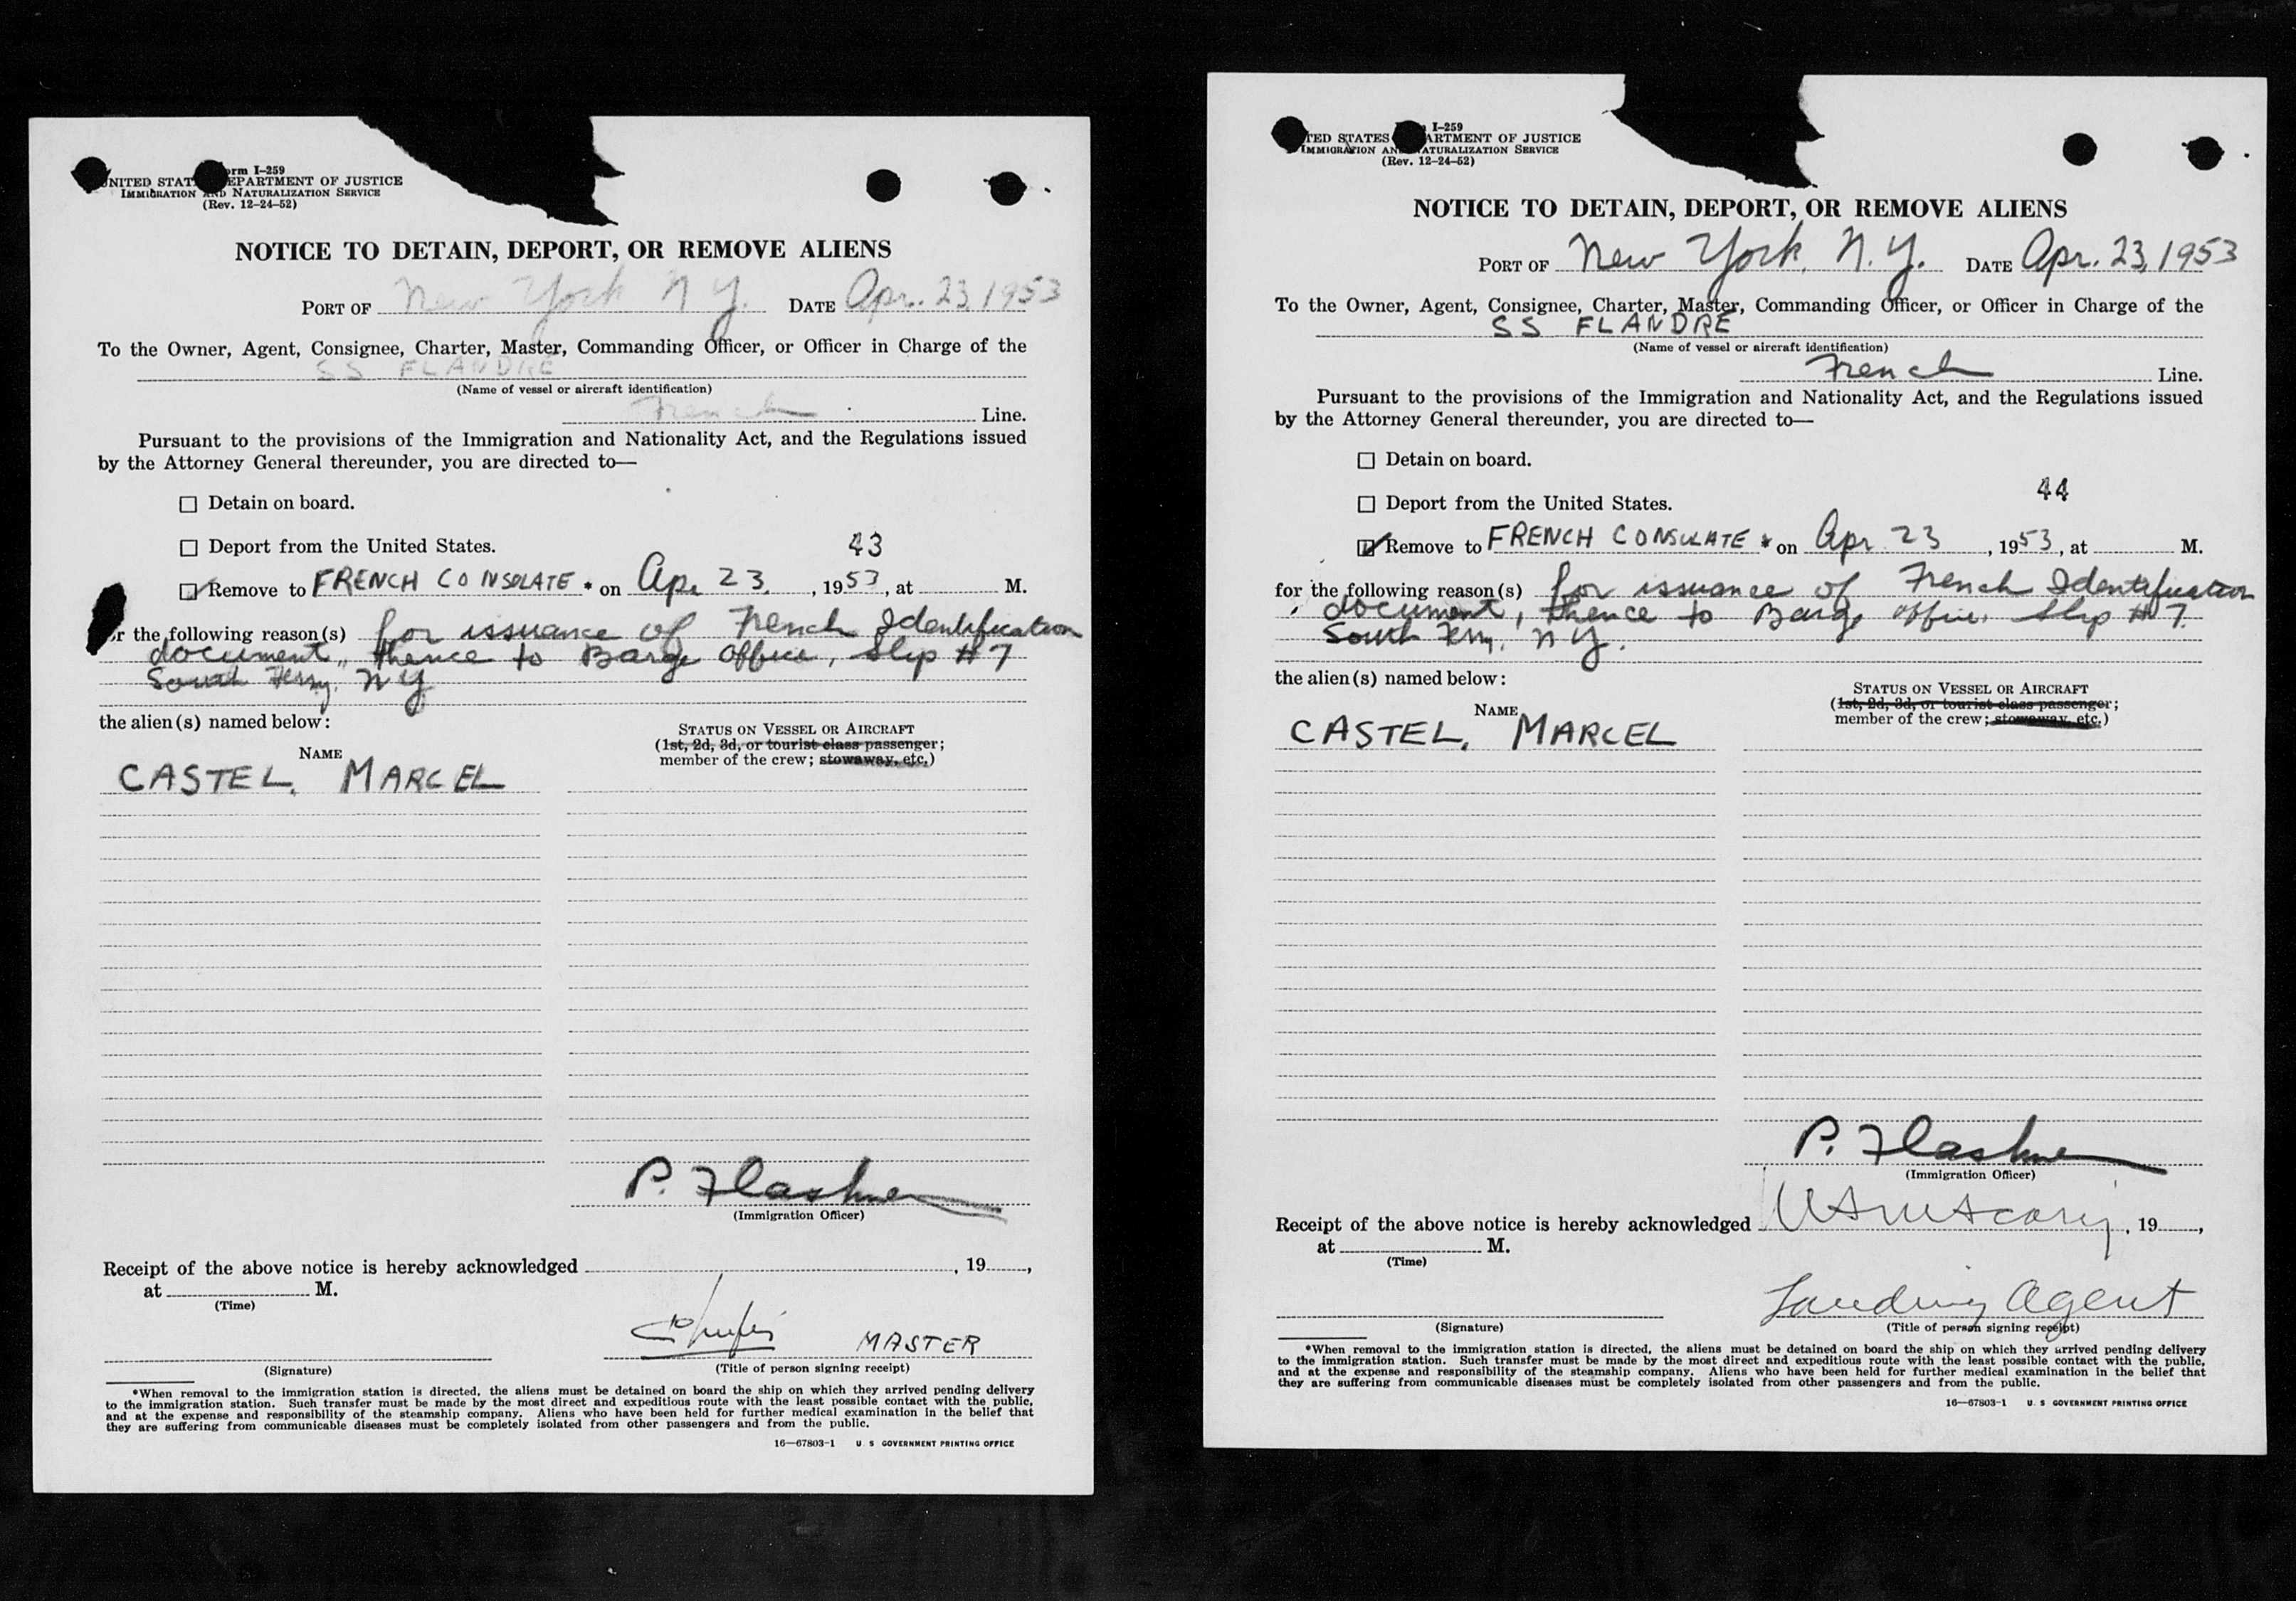 rm I-259
NITED STAT EPARTMENT OF JUSTICE
IMMIGRATION AND NATURALIZATION SERVICE
(Rev. 12-24-52)
NOTICE TO DETAIN, DEPORT, OR REMOVE ALIENS
PORT OF New York N Y. DATE Apr. 23, 1953
To the Owner, Agent, Consignee, Charter, Master, Commanding Officer, or Officer in Charge of the
SS FLANDRE
(Name of vessel or aircraft identification)
French Line.
Pursuant to the provisions of the Immigration and Nationality Act, and the Regulations issued
by the Attorney General thereunder, you are directed to—
☐ Detain on board.
☐ Deport from the United States. 43
☑ Remove to FRENCH CONSOLATE * on Apr 23, 1953, at M.
r the following reason(s) for issuance of French Identification
document, thence to Barge Office, Slip #7
South Ferry, N Y
the alien(s) named below:
STATUS ON VESSEL OR AIRCRAFT
(1st, 2d, 3d, or tourist class passenger;
member of the crew; stowaway, etc.)
NAME
CASTEL, MARCEL
P. Flashner
(Immigration Officer)
Receipt of the above notice is hereby acknowledged , 19 ,
at M.
(Time)
MASTER
(Signature)
(Title of person signing receipt)
*When removal to the immigration station is directed, the aliens must be detained on board the ship on which they arrived pending delivery
to the immigration station. Such transfer must be made by the most direct and expeditious route with the least possible contact with the public,
and at the expense and responsibility of the steamship company. Aliens who have been held for further medical examination in the belief that
they are suffering from communicable diseases must be completely isolated from other passengers and from the public.
16—67803-1 U. S GOVERNMENT PRINTING OFFICE
I-259
TED STATES ARTMENT OF JUSTICE
IMMIGRATION AN NATURALIZATION SERVICE
(Rev. 12-24-52)
NOTICE TO DETAIN, DEPORT, OR REMOVE ALIENS
PORT OF New York, N.Y. DATE Apr. 23, 1953
To the Owner, Agent, Consignee, Charter, Master, Commanding Officer, or Officer in Charge of the
SS FLANDRE
(Name of vessel or aircraft identification)
French Line.
Pursuant to the provisions of the Immigration and Nationality Act, and the Regulations issued
by the Attorney General thereunder, you are directed to—
☐ Detain on board.
☐ Deport from the United States. 44
☑ Remove to FRENCH CONSULATE * on Apr 23, 1953, at M.
for the following reason(s) for issuance of French Identification
document, thence to Barge Office, Slip #7.
South Ferry, N Y.
the alien(s) named below:
STATUS ON VESSEL OR AIRCRAFT
(1st, 2d, 3d, or tourist class passenger;
member of the crew; stowaway, etc.)
NAME
CASTEL, MARCEL
P. Flashner
(Immigration Officer)
Receipt of the above notice is hereby acknowledged , 19 ,
at M.
(Time)
Landing Agent
(Signature)
(Title of person signing receipt)
*When removal to the immigration station is directed, the aliens must be detained on board the ship on which they arrived pending delivery
to the immigration station. Such transfer must be made by the most direct and expeditious route with the least possible contact with the public,
and at the expense and responsibility of the steamship company. Aliens who have been held for further medical examination in the belief that
they are suffering from communicable diseases must be completely isolated from other passengers and from the public.
16—67803-1 U. S GOVERNMENT PRINTING OFFICE